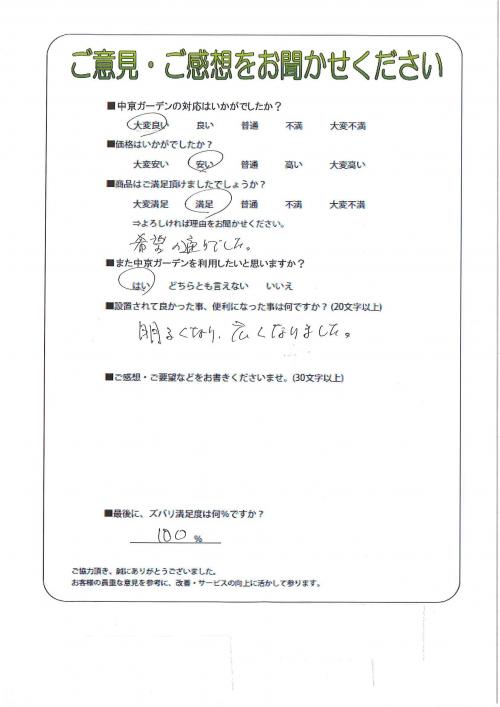 ご意見・ご感想をお聞かせください
■中京ガーデンの対応はいかがでしたか？
大変良い 良い 普通 不満 大変不満
■価格はいかがでしたか？
大変安い 安い 普通 高い 大変高い
■商品はご満足頂けましたでしょうか？
大変満足 満足 普通 不満 大変不満
⇒よろしければ理由をお聞かせください。
希望の通りでした。
■また中京ガーデンを利用したいと思いますか？
はい どちらとも言えない いいえ
■設置されて良かった事、便利になった事は何ですか？(20文字以上)
明るくなり、広くなりました。
■ご感想・ご要望などをお書きくださいませ。(30文字以上)
■最後に、ズバリ満足度は何％ですか？
100 %
ご協力頂き、誠にありがとうございました。
お客様の貴重な意見を参考に、改善・サービスの向上に活かして参ります。